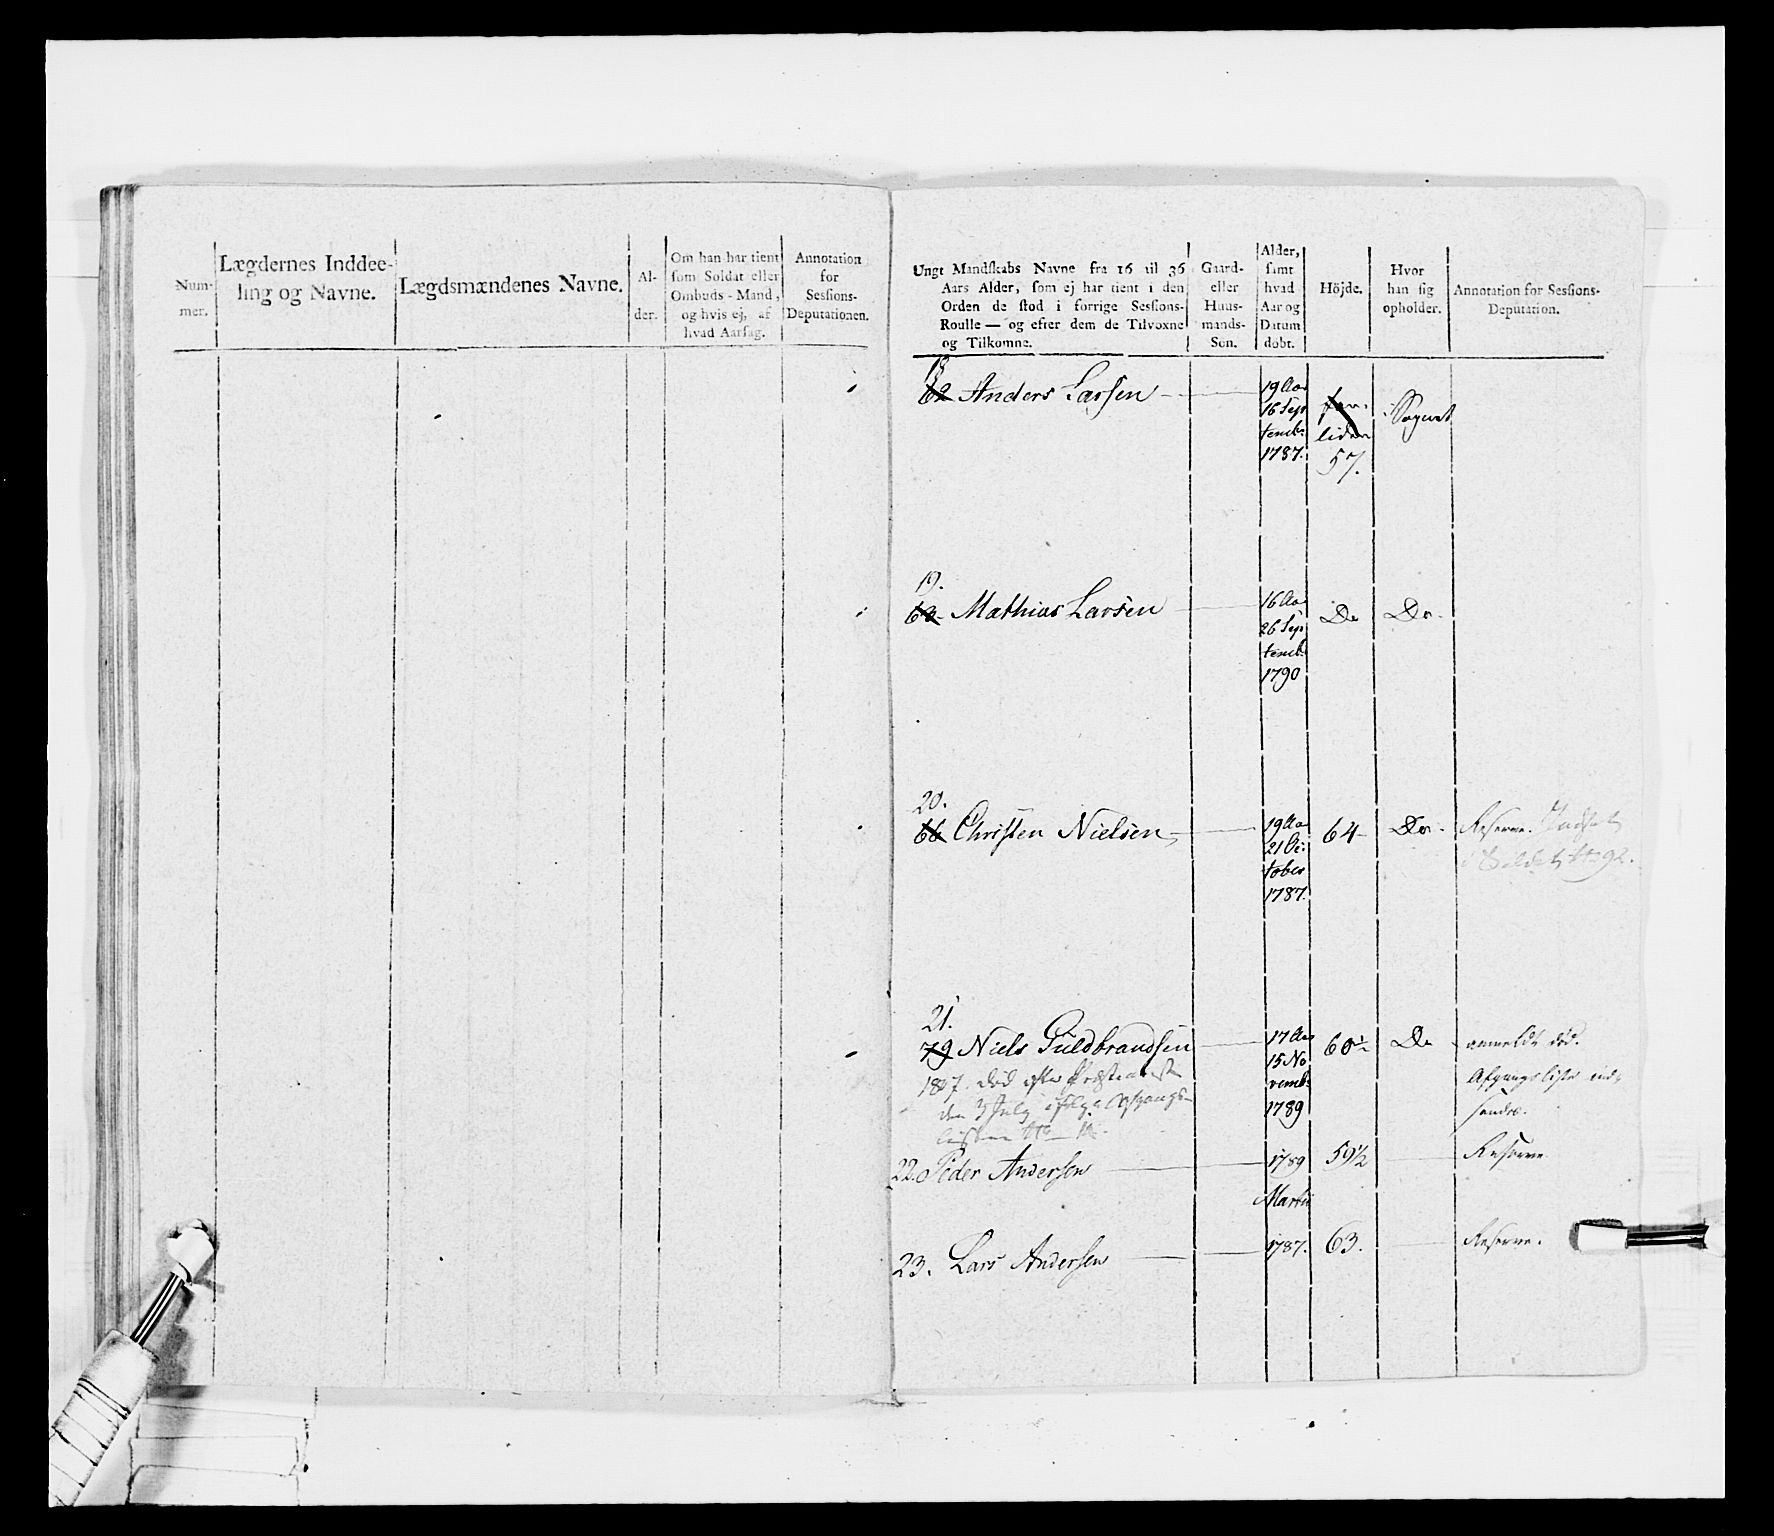 Num-
mer.
Lægdernes Inddee-
ling og Navne.
Lægdsmændenes Navne.
Al-
der.
Om han har tient
som Soldat eller
Ombuds-Mand,
og hvis ej, af
hvad Aarsag.
Annotation
for
Sessions-
Deputationen.
Ungt Mandskabs Navne fra 16 til 36
Aars Alder, som ej har tient i den
Orden de stod i forrige Sessions-
Roulle — og efter dem de Tilvoxne
og Tilkomne.
Gaard-
eller
Huus-
mands-
Søn.
Alder,
samt
hvad
Aar og
Datum
døbt.
Höjde.
Hvor
han sig
opholder.
Annotation for Sessions-
Deputation.
18
62 Anders Larsen
19 Aar
16 Sep
temb:
1787.
liden
57.
i Sognet
19.
63 Mathias Larsen
16 Aar
26 Sep
temb:
1790
Do
Do.
20.
66 Christen Nielsen
19 Aar
21 Oc:
tober
1787.
64
Do.
Reserve. Indsat
1792.
21.
79 Niels Guldbrandsen
17 Aar
15 No
vemb:
1789
60½
Do
anmeldt død.
Afgangsliste ind-
sendes.
1807. død efter Præstens
den 3 July ifølge Afgangs-
listen No
22. Peder Andersen
1789
59½
Reserve
Martii
23. Lars Andersen
1787.
63.
Reserve.